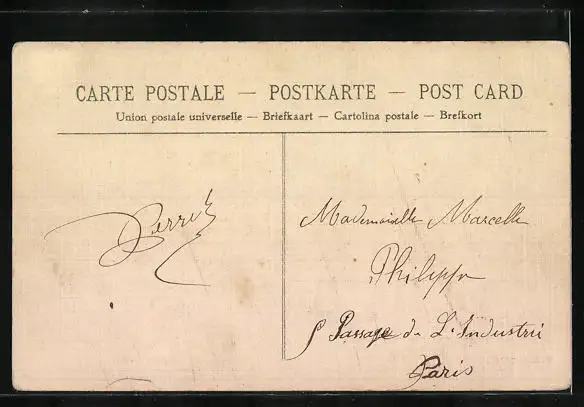 CARTE POSTALE — POSTKARTE — POST CARD
Union postale universelle — Briefkaart — Cartolina postale — Brefkort
Mademoiselle Marcelle
Philippe
Passage de L'Industrie
Paris